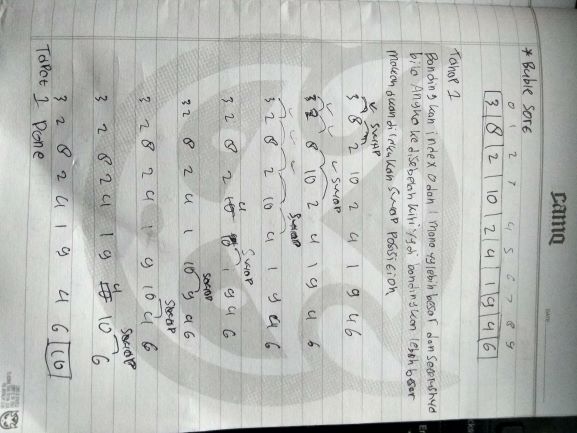 camq
DATE
* Buble Sore
0 1 2 3 4 5 6 7 8 9
3 8 2 10 2 4 1 9 4 6
Tahap 1
Bandingkan index 0 dan 1 mana yg lebih besar dan seterusnya
bila Angka ke disebelah kiri yg di bandingkan lebih besar
makah akan di lakukan swap Possition
SWAP
3 8 2 10 2 4 1 9 4 6
SWAP
3 2 8 10 2 4 1 9 4 6
SWAP
3 2 8 2 10 4 1 9 4 6
4 SWAP
3 2 8 2 10 10 1 9 4 6
SWAP
3 2 8 2 4 1 10 9 4 6
SWAP
3 2 8 2 4 1 9 10 4 6
SWAP
4
3 2 8 2 4 1 9 10 10 6
3 2 8 2 4 1 9 4 6 10
Tapat 1 Done